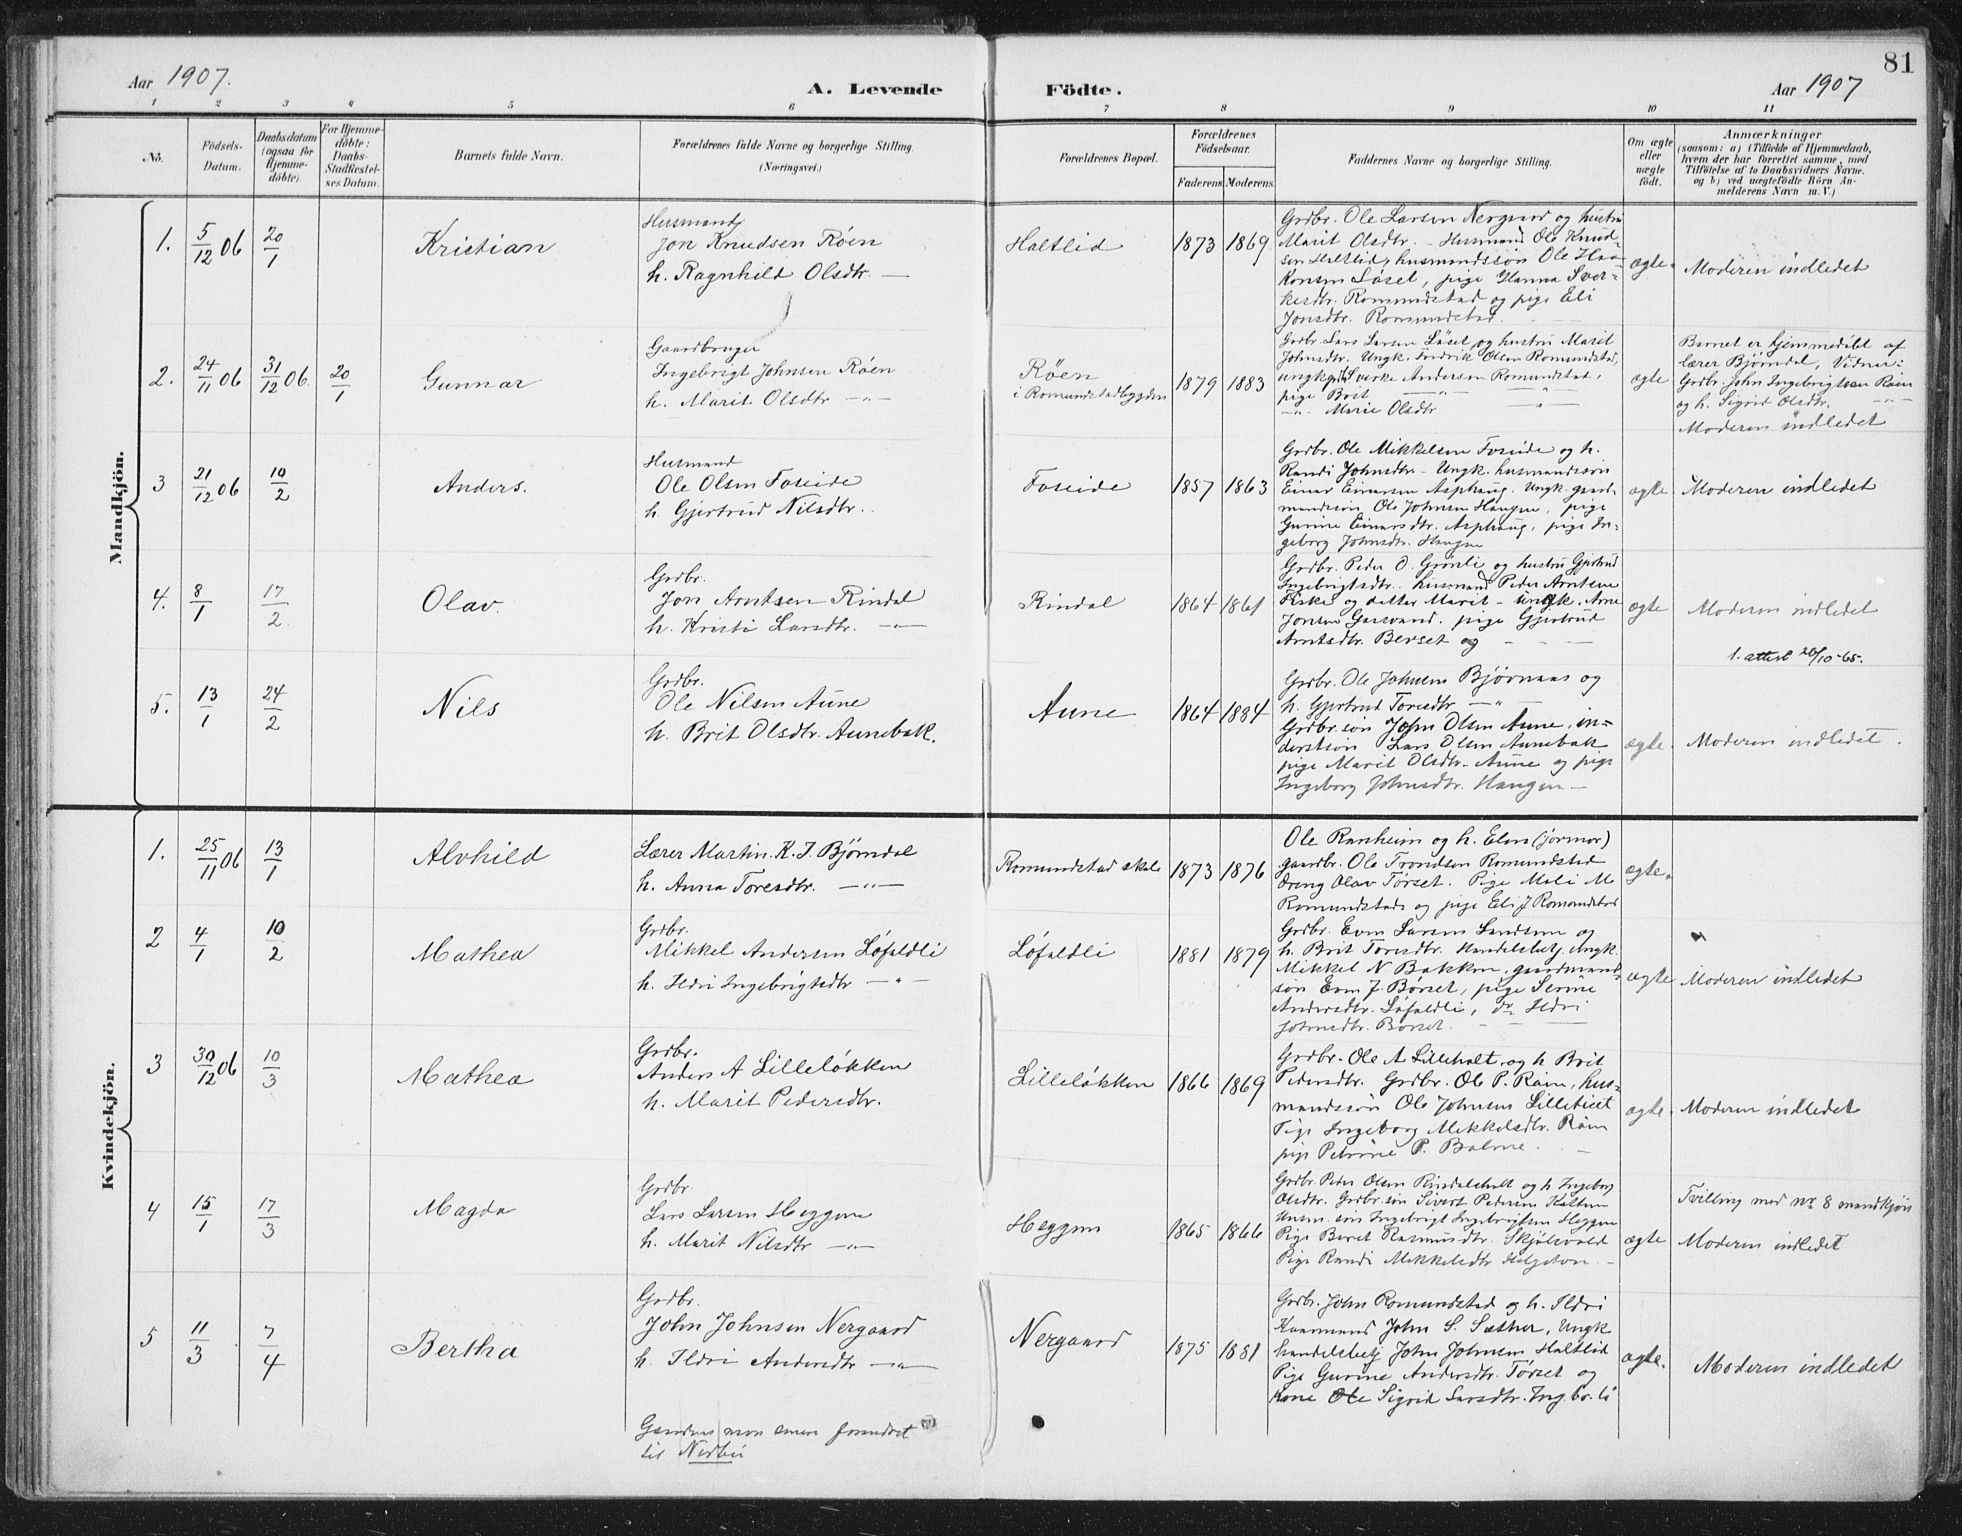 81
Aar 1907. A. Levende Födte. Aar 1907
1 2 3 4 5 6 7 8 9 10 11
No.
Födsels-
Datum.
Daabsdatum
(ogsaa for
Hjemme-
döbte).
For Hjemme-
döbte:
Daabs-
Stadfæstel-
ses Datum.
Barnets fulde Navn.
Forældrenes fulde Navne og borgerlige Stilling.
(Næringsvei.)
Forældrenes Bopæl.
Forældrenes
Födselsaar.
Faderens. Moderens.
Faddernes Navne og borgerlige Stilling.
Om ægte
eller
uægte
födt.
Anmærkninger
(saasom: a) i Tilfælde af Hjemmedaab,
hvem der har forrettet samme, med
Tilföielse af to Daabsvidners Navne.
og b) ved uægtefödte Börn An-
melderens Navn m. V.)
Mandkjön.
1. 5/12 06 20/1 Kristian
Husmand
Jon Knudsen Røen
h. Ragnhild Olsdtr. —
Haltlid 1873 1869
Grdbr. Ole Larsen Nergaard og hustru
Marit Olsdtr. - Husmand Ole Knud-
sen Haltlid, husmandssön Ole Haa-
konsen Løset, pige Hanna Sver-
kesdtr. Romundstad og pige Eli
Jonsdtr. Romundstad.
ægte. Moderen indledet
2. 24/11 06 31/12 06. 20/1 Gunnar
Gaardbruger
Ingebrigt Johnsen Røen
h. Marit Olsdtr —„—
Røen
i Romundstadbygden 1879 1883
Grdbr. Lars Larsen Løset og hustru Marit
Johnsdtr. Ungk. Fredrik Olsen Romundstad,
ungk. Sverke Andersen Romundstad,
pige Brit —„— „
—„— Marie Olsdtr —„—
ægte
Barnet er hjemmedøbt af
lærer Bjørndal, Vidner:
Grdbr. John Ingebrigtsen Røen
og h. Sigrid Olsdtr. —„—
Moderen indledet
3 21/12 06 10/2 Anders.
Husmand
Ole Olsen Foseide
h. Gjertrud Nilsdtr.
Foseide 1857 1863
Grdbr. Ole Mikkelsen Foseide og h.
Randi Johnsdtr. - Ungk. husmandssön
Einar Einarsen Asphaug. Ungk. gaard-
mandssön Ole Johnsen Haugen, pige
Gurine Einarsdtr. Asphaug, pige In-
geborg Johnsdtr. Haugen
ægte. Moderen indledet
4. 8/1 17/2 Olav.
Grdbr.
Jon Arntsen Rindal
h. Kristi Larsdtr. —„—
Rindal 1864 1861
Grdbr. Peder O. Grønli og hustru Gjertrud
Ingebrigtsdtr. husmand Peder Arntsen
Fiske og datter Marit - ungk. Arne
Jonsen Gaasvand. pige Gjertrud
Arntsdtr. Berset og
ægte Moderen indledet
1. attest 20/10-65.
5. 13/1 24/2 Nils
Grdbr.
Ole Nilsen Aune
h. Brit Olsdtr. Aunebak.
Aune 1864 1884
Grdbr. Ole Johnsen Bjørnaas og
h. Gjertrud Toresdtr —„—
Grdbr. søn John Olsen Aune, in-
derstsön Lars Olsen Aunebak
pige Marit Olsdtr. Aune og pige
Ingeborg Johnsdtr. Haugen —
ægte. Moderen indledet.
Kvindekjön.
1. 25/11 06 13/1 Alvhild
Lærer Martin K. J. Bjørndal
h. Anna Toresdtr. —„—
Romundstad skole 1873 1876
Ole Ranheim og h. Elen (jormor)
gaardbr. Ole Trondsen Romundstad
dreng Olav Tørset. Pige Mali M
Romundstad og pige Eli J Romundstad
ægte.
2 4/1 10/2 Mathea
Grdbr.
Mikkel Andersen Løfaldli
h. Ildri Ingebrigtsdtr —„—
Løfaldli 1881 1879
Grdbr. Even Larsen Landsem og
h. Brit Toresdtr. Handelsbetj. Ungk.
Mikkel N Bakken, gaardmand-
sön Even J. Børset, pige Serine
Andersdtr. Løfaldli, do Ildri
Johnsdtr. Børset.
ægte Moderen indledet
3 30/12 06 10/3 Mathea
Grdbr.
Anders A Lilleløkken
h. Marit Pedersdtr.
Lilleløkken 1866 1869
Grdbr. Ole A Lilleholt og h Brit
Pedersdtr. Grdbr. Ole P. Røen, hus-
mandssön Ole Johnsen
Pige Ingeborg Mekkelsdtr. Røen
pige Petrine P. Bolme.
ægte. Moderen indledet
4 15/1 17/3 Magda
Grdbr.
Lars Larsen Heggem
h. Marit Nilsdtr —„—
Heggem 1865 1866
Grdbr. Peder Olsen Rindalsholt og h Ingeborg
Olsdtr. Grdbr. søn Sivert Pedersen
søn Ingebrigt Ingebrigtsen Heggem
Pige Beret Rasmusdtr. Skjølsvold
Pige Randi Mikkelsdtr Helgetun. —
ægte
Tvilling med nr 8 mandkjøn
Moderen indledet
5 11/3 7/4 Bertha
Grdbr.
John Johnsen Nergaard
h. Ildri Andersdtr —„—
Nergaard 1875 1881
Grdbr. John Romundstad og h. Ildri
Kaarmand John S. Sæther, Ungk
handelsbetj John Johnsen Haltlid
Pige Gurine Andersdtr. Tørset og
kone Ole Sigrid Larsdtr.
ægte. Moderen indledet
Gaardens navn senere forandret
til Nerbu